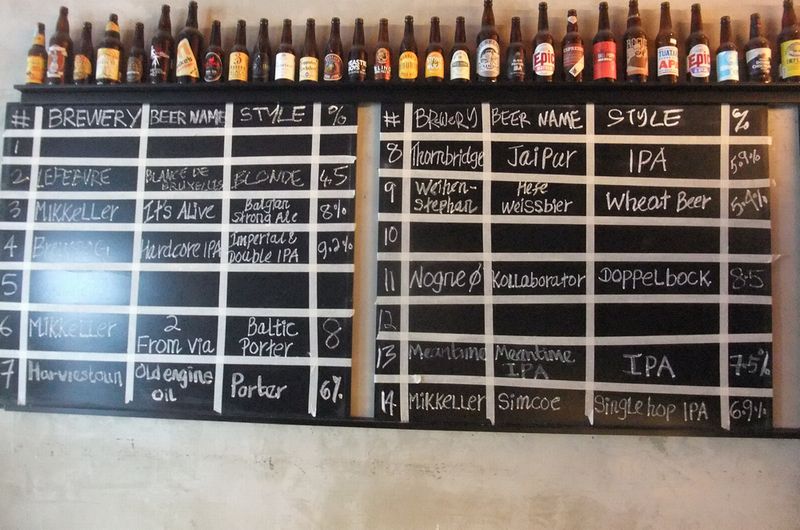 # BREWERY BEER NAME STYLE %
1
2 LEFEBVRE BLANCE DE BRUXELLES BLONDE 4.5
3 MIKKELLER It's ALIVE Belgian Strong Ale 8%
4 Hardcore IPA Imperial & Double IPA 9.2%
5
6 Mikkeller 2 From via Baltic Porter 8
7 Harviestoun Old engine OIL Porter 6%
# BREWERY BEER NAME STYLE %
8 Thornbridge JaiPur IPA 5.9%
9 Weihen-stephan Hefe Weissbier Wheat Beer 5.4%
10
11 Nogne Ø Kollaborator DOPPELBOCK 8.5
12
13 Meantime Meantime IPA IPA 7.5%
14 MIKKELLER Simcoe Single hop IPA 6.9%
EPIC
EPIC
TUATARA
APA